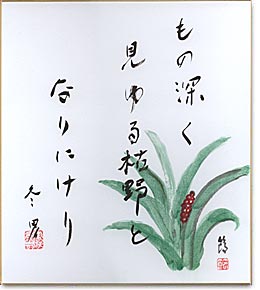 もの深く
見ゆる枯野と
なりにけり
冬男